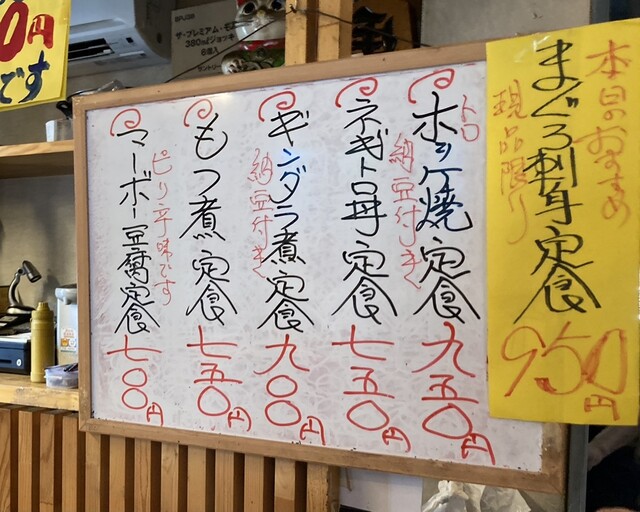 本日のおすすめ
まぐろ刺身定食
現品限り
950円
トロ
ホッケ焼定食
九五〇円
納豆付き
ネギトロ丼定食
七五〇円
ギンダラ煮定食
納豆付き
九〇〇円
もつ煮定食
七五〇円
ピリ辛味です
マーボー豆腐定食
七〇〇円
0円
です
ザ・プレミアム・モ
380mlジョッキ
6個入